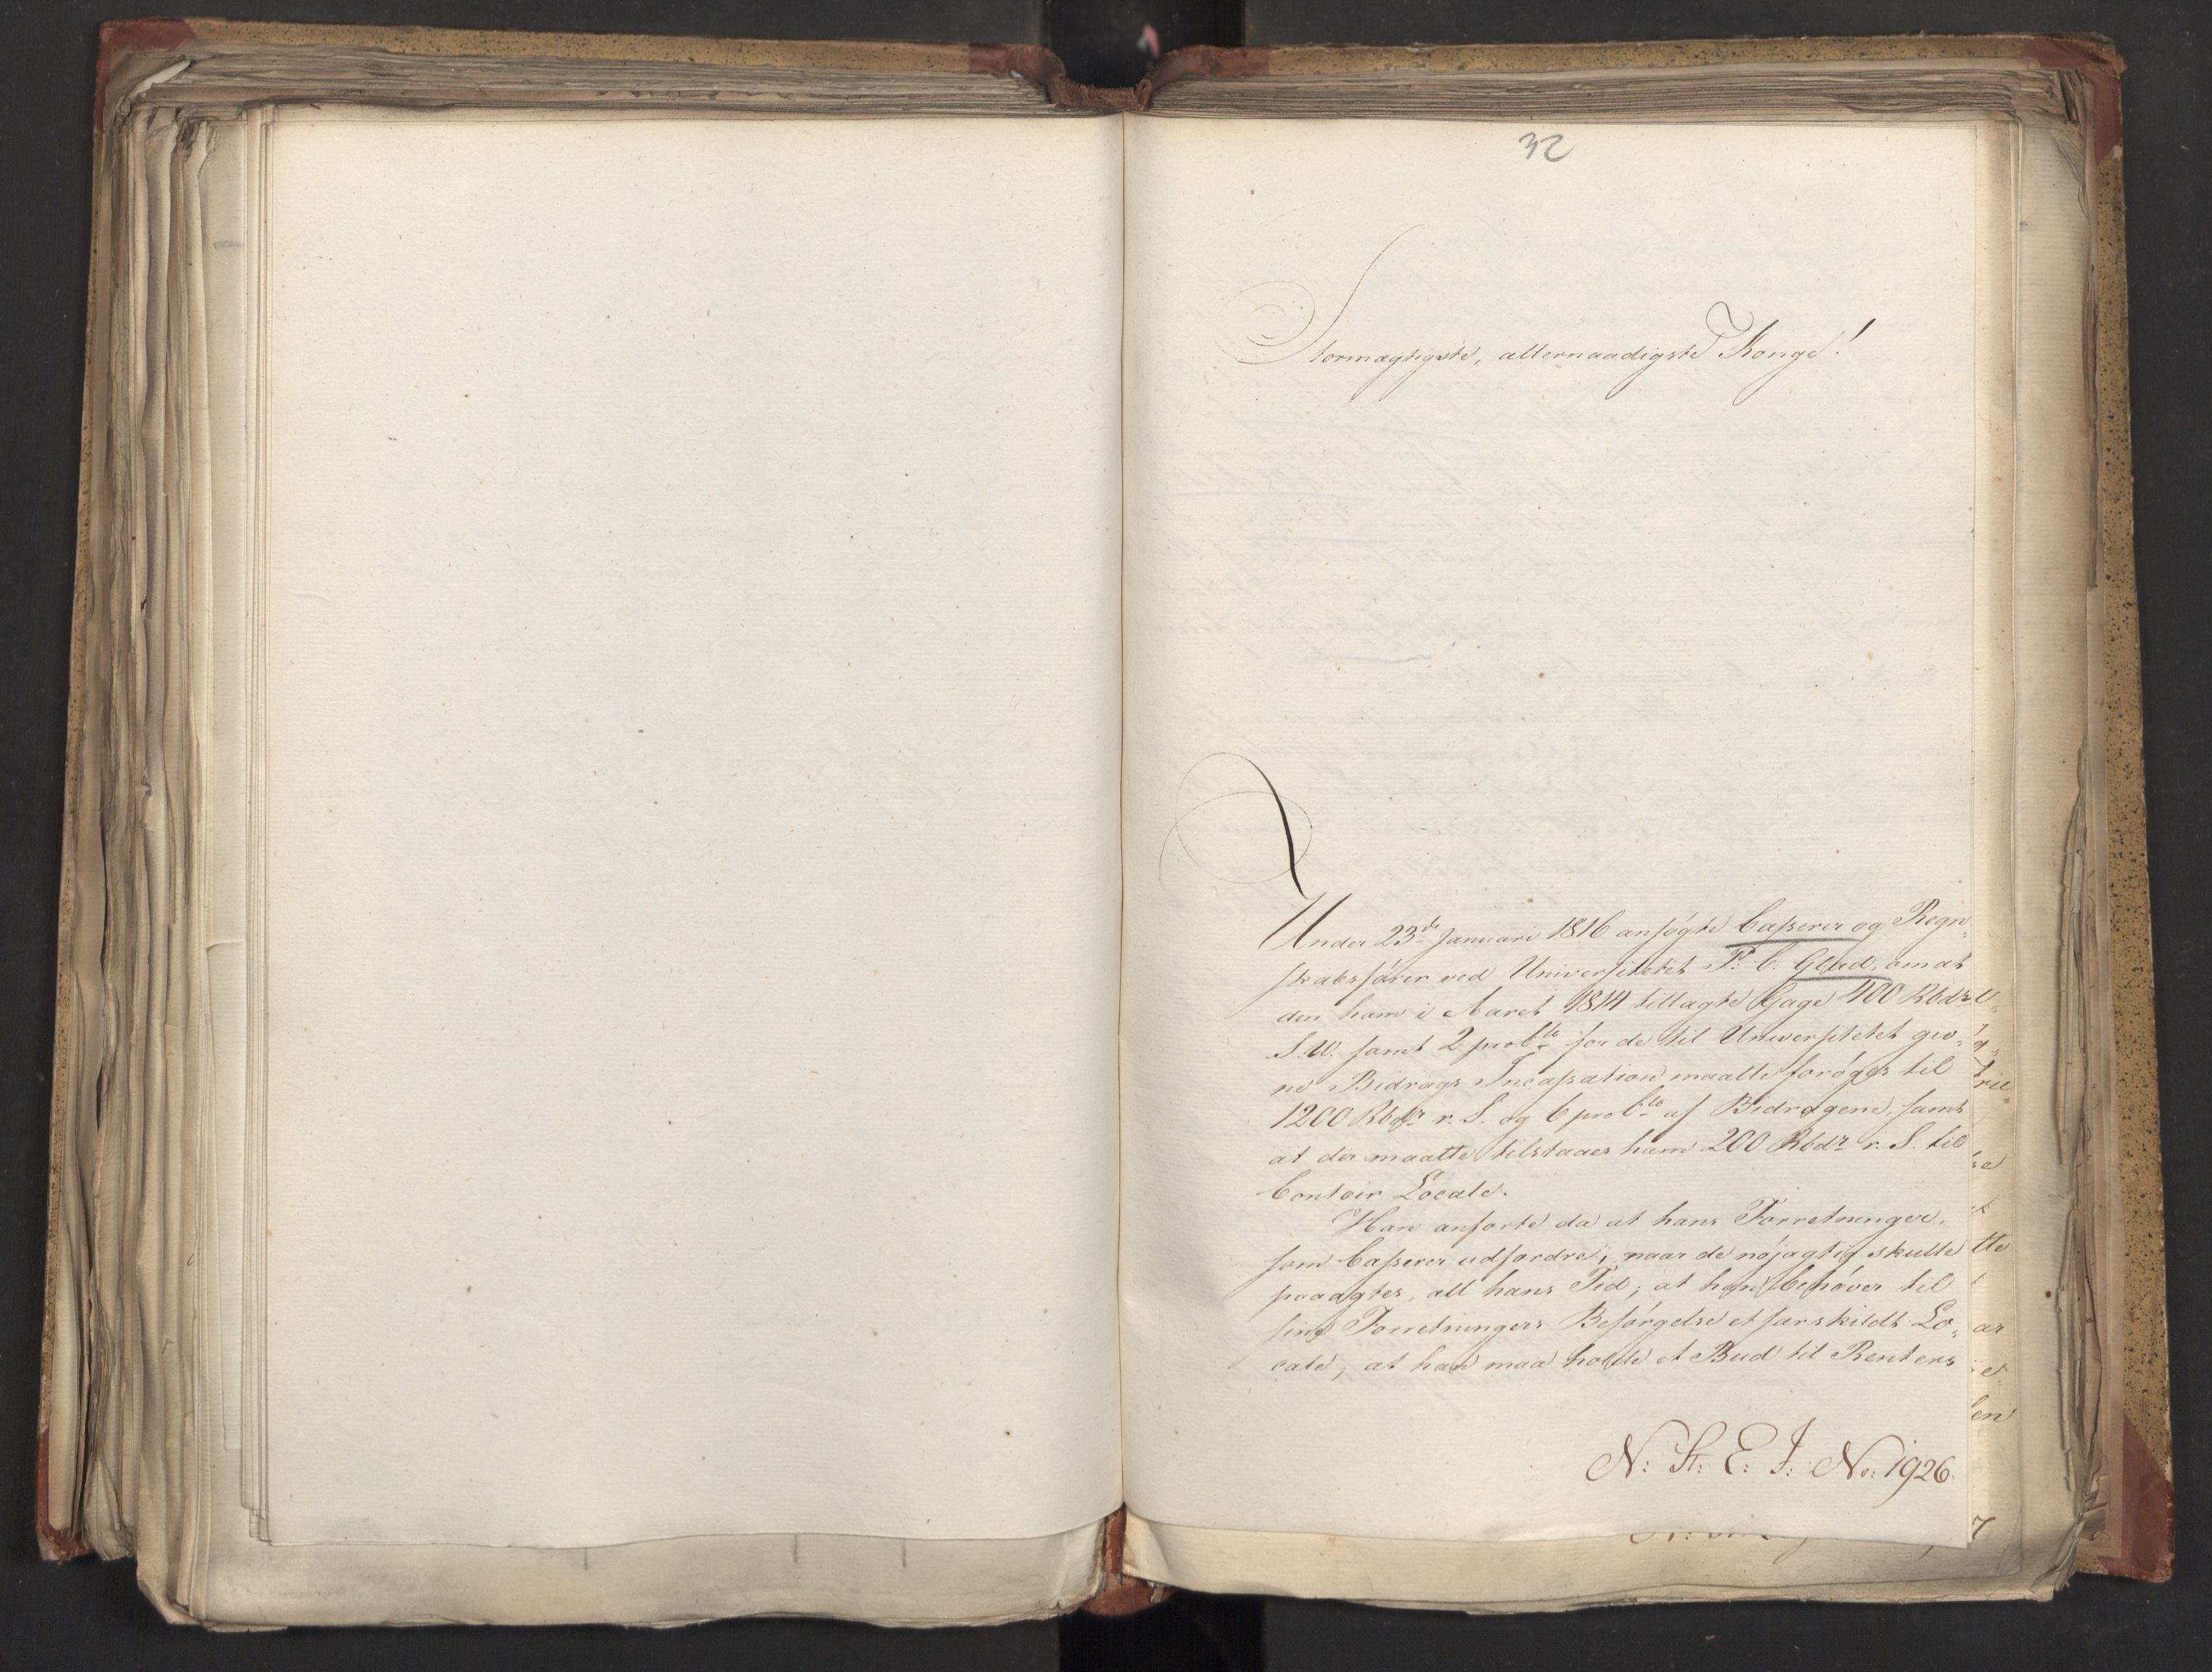 32
Stormægtigste, allernaadigste Konge!
Under 23de Januari 1816 ansøgte Casserer og Regn-
skabsfører ved Universitetet P. C. Glad, om at
den ham i Aaret 1814 tillagte Gage 400 Rbdr
S.V. samt 2 proCto for de til Universitetet giv-
ne Bidrags Incassation maatte forøges til
1200 Rbdr r. S. og 6 proCto af Bidragene, samt
at der maatte tilstaaes ham 200 Rbdr r. S. til
Contoir Locale.
Han anførte da at hans Forretninger,
som Casserer udfordre, naar de nøjagtig skulle
paaagtes, all hans Tid; at han behøver til
sine Forretningers Besørgelse et særskildt Lo-
cale; at han maa holde et Bud til Renters
N: St: E: J: No: 1926.